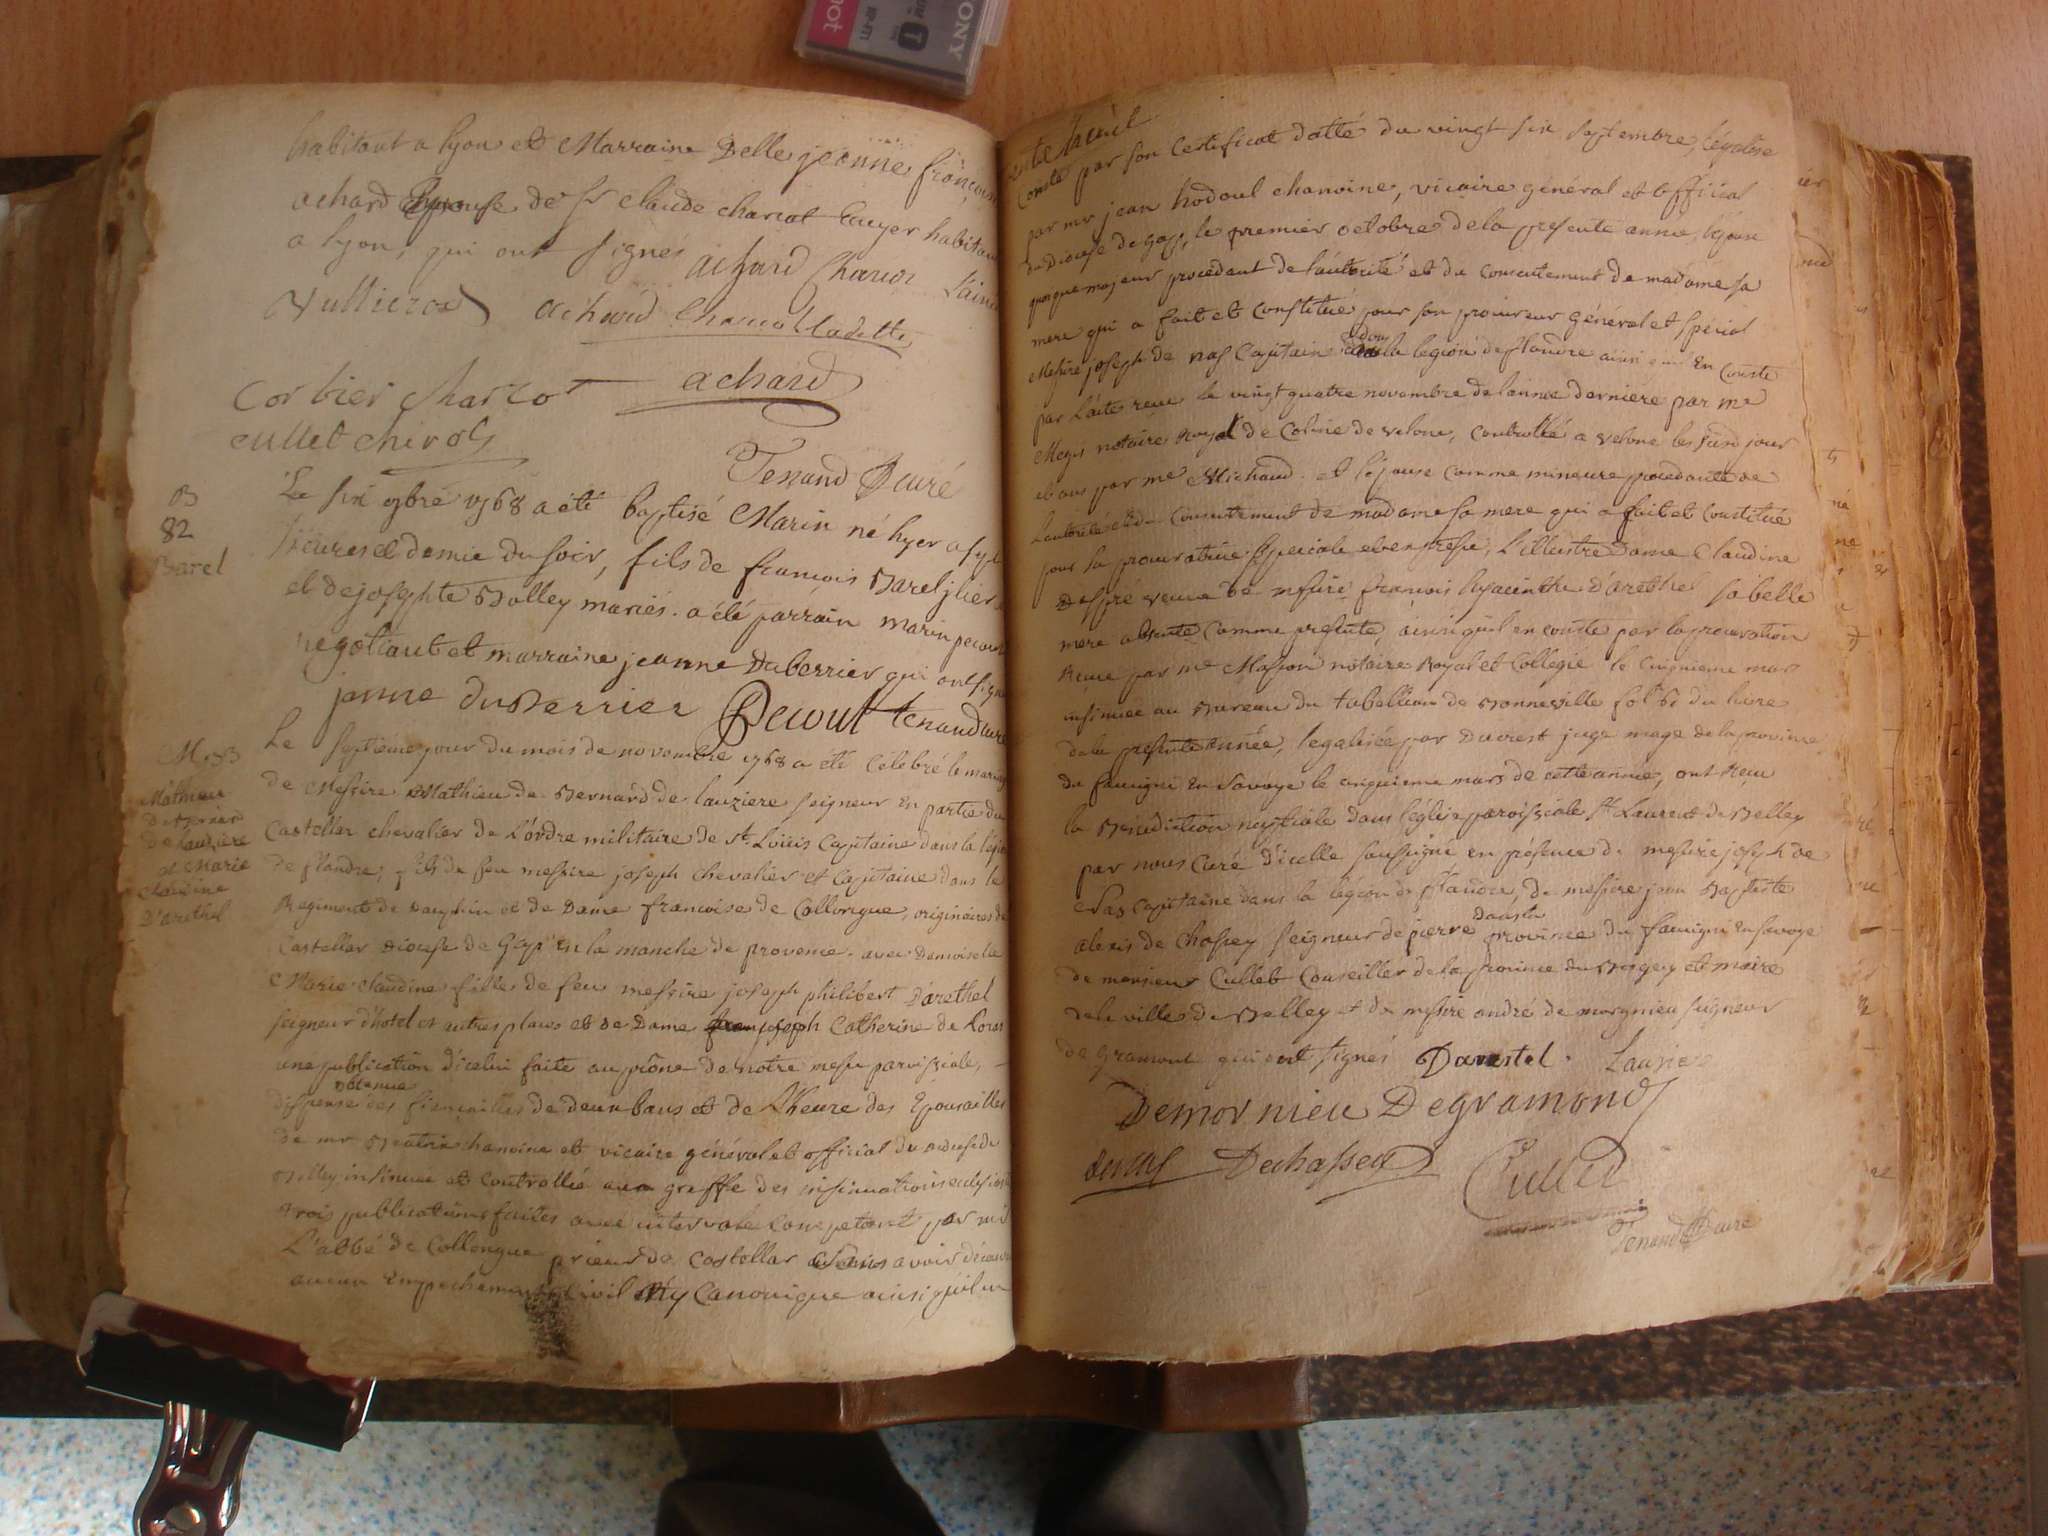 SONY
habitant a lyon et Marraine Delle jeanne françoise
achard Epouse de Sr Claude charcot Ecuyer habitant
a lyon, qui ont signés achard Charcot
achard Charcot Cadette
Corbier Charcot achard
Cullet
Tenand Curé
B
82
Barel
Le six 9bre 1768 a été baptisé Marin né hyer a
heures et demie du soir, fils de françois Barel
et de josephte Balley mariés. a été parrain marin pecoul
negotiant et marraine jeanne Duberrier qui ont signé
janne duberrier Pecoul tenand curé
M.
Mathieu
de Bernard
de lauziere
et Marie
Claudine
D'arethel
Le septième jour du mois de novembre 1768 a été célébré le mariage
de Messire Mathieu de Bernard de lauziere seigneur en partie du
Castellar chevalier de l'ordre militaire de St Louis Capitaine dans la légion
de flandre, fils de feu messire joseph chevalier et Capitaine dans le
Regiment de Dauphin et de Dame francoise de Collongue, originaires de
Castellar Diocese de Gap en la manche de provence. avec Demoiselle
Marie claudine fille de feu messire joseph philibert D'arethel
seigneur d'hotel et autres places et de Dame joseph Catherine de Loras
une publication d'icelui faite au prône de notre messe paroissiale,
obtenue
dispense des fiancailles de deux bans et de l'heure des Epousailles
de mr chanoine et vicaire général et official du diocese de
Belley insinuée et controllée au greffe des insinuations
trois publications faites avec intervale competant par mr
L'abbé de Collongue prieur de Castellar sans avoir découvert
aucun Empechement Civil Ny Canonique ainsi qu'il en
Conste par son Certificat datté du vingt six septembre, légalisé
par mr jean hodoul chanoine, vicaire général et official
du Diocese de Gap, le premier octobre de la presente année, l'époux
quoique majeur procedant de l'autorité et du consentement de madame sa
mere qui a fait et constitué pour son procureur général et spécial
Messire joseph de nas Capitaine dans la legion de flandre ainsi qu'il En Conste
par l'acte reçu le vingt quatre novembre de l'année derniere par me
notaire Royal de Coline de velone, Controllé a velone les sus jour
et ans par me Michaud. et l'épouse comme mineure procedante de
l'autorité et du consentement de madame sa mere qui a fait et constitué
pour sa procuratrice speciale et expresse, l'illustre Dame Claudine
veuve de messire francois hyacinthe D'arethel sa belle
mere absente comme presente, ainsi qu'il en conste par la procuration
Reçue par me Masson notaire Royal et Collegié le Cinquieme mars
insinuée au Bureau du tabellion de Bonneville fol. 62 du livre
de la presente année, legalisée par Ducrest juge mage de la province
du faucigni En Savoye le cinquieme mars de cette année, ont Reçu
la Bénédiction nuptiale dans l'église paroissiale St Laurent de Belley
par nous Curé d'icelle soussigné en présence de messire joseph de
Nas capitaine dans la légion de flandre, de messire jean Baptiste
alexis de Chassey seigneur de pierre dans la province du faucigni En savoye
de monsieur Cullet Conseiller de la province du Bugey et maire
de la ville de Belley et de messire andré de morgnieu seigneur
de Gramont qui ont signés Darestel. Lauziere
Demornieu Degramond
denas Dechassey Cullet
Tenand Curé